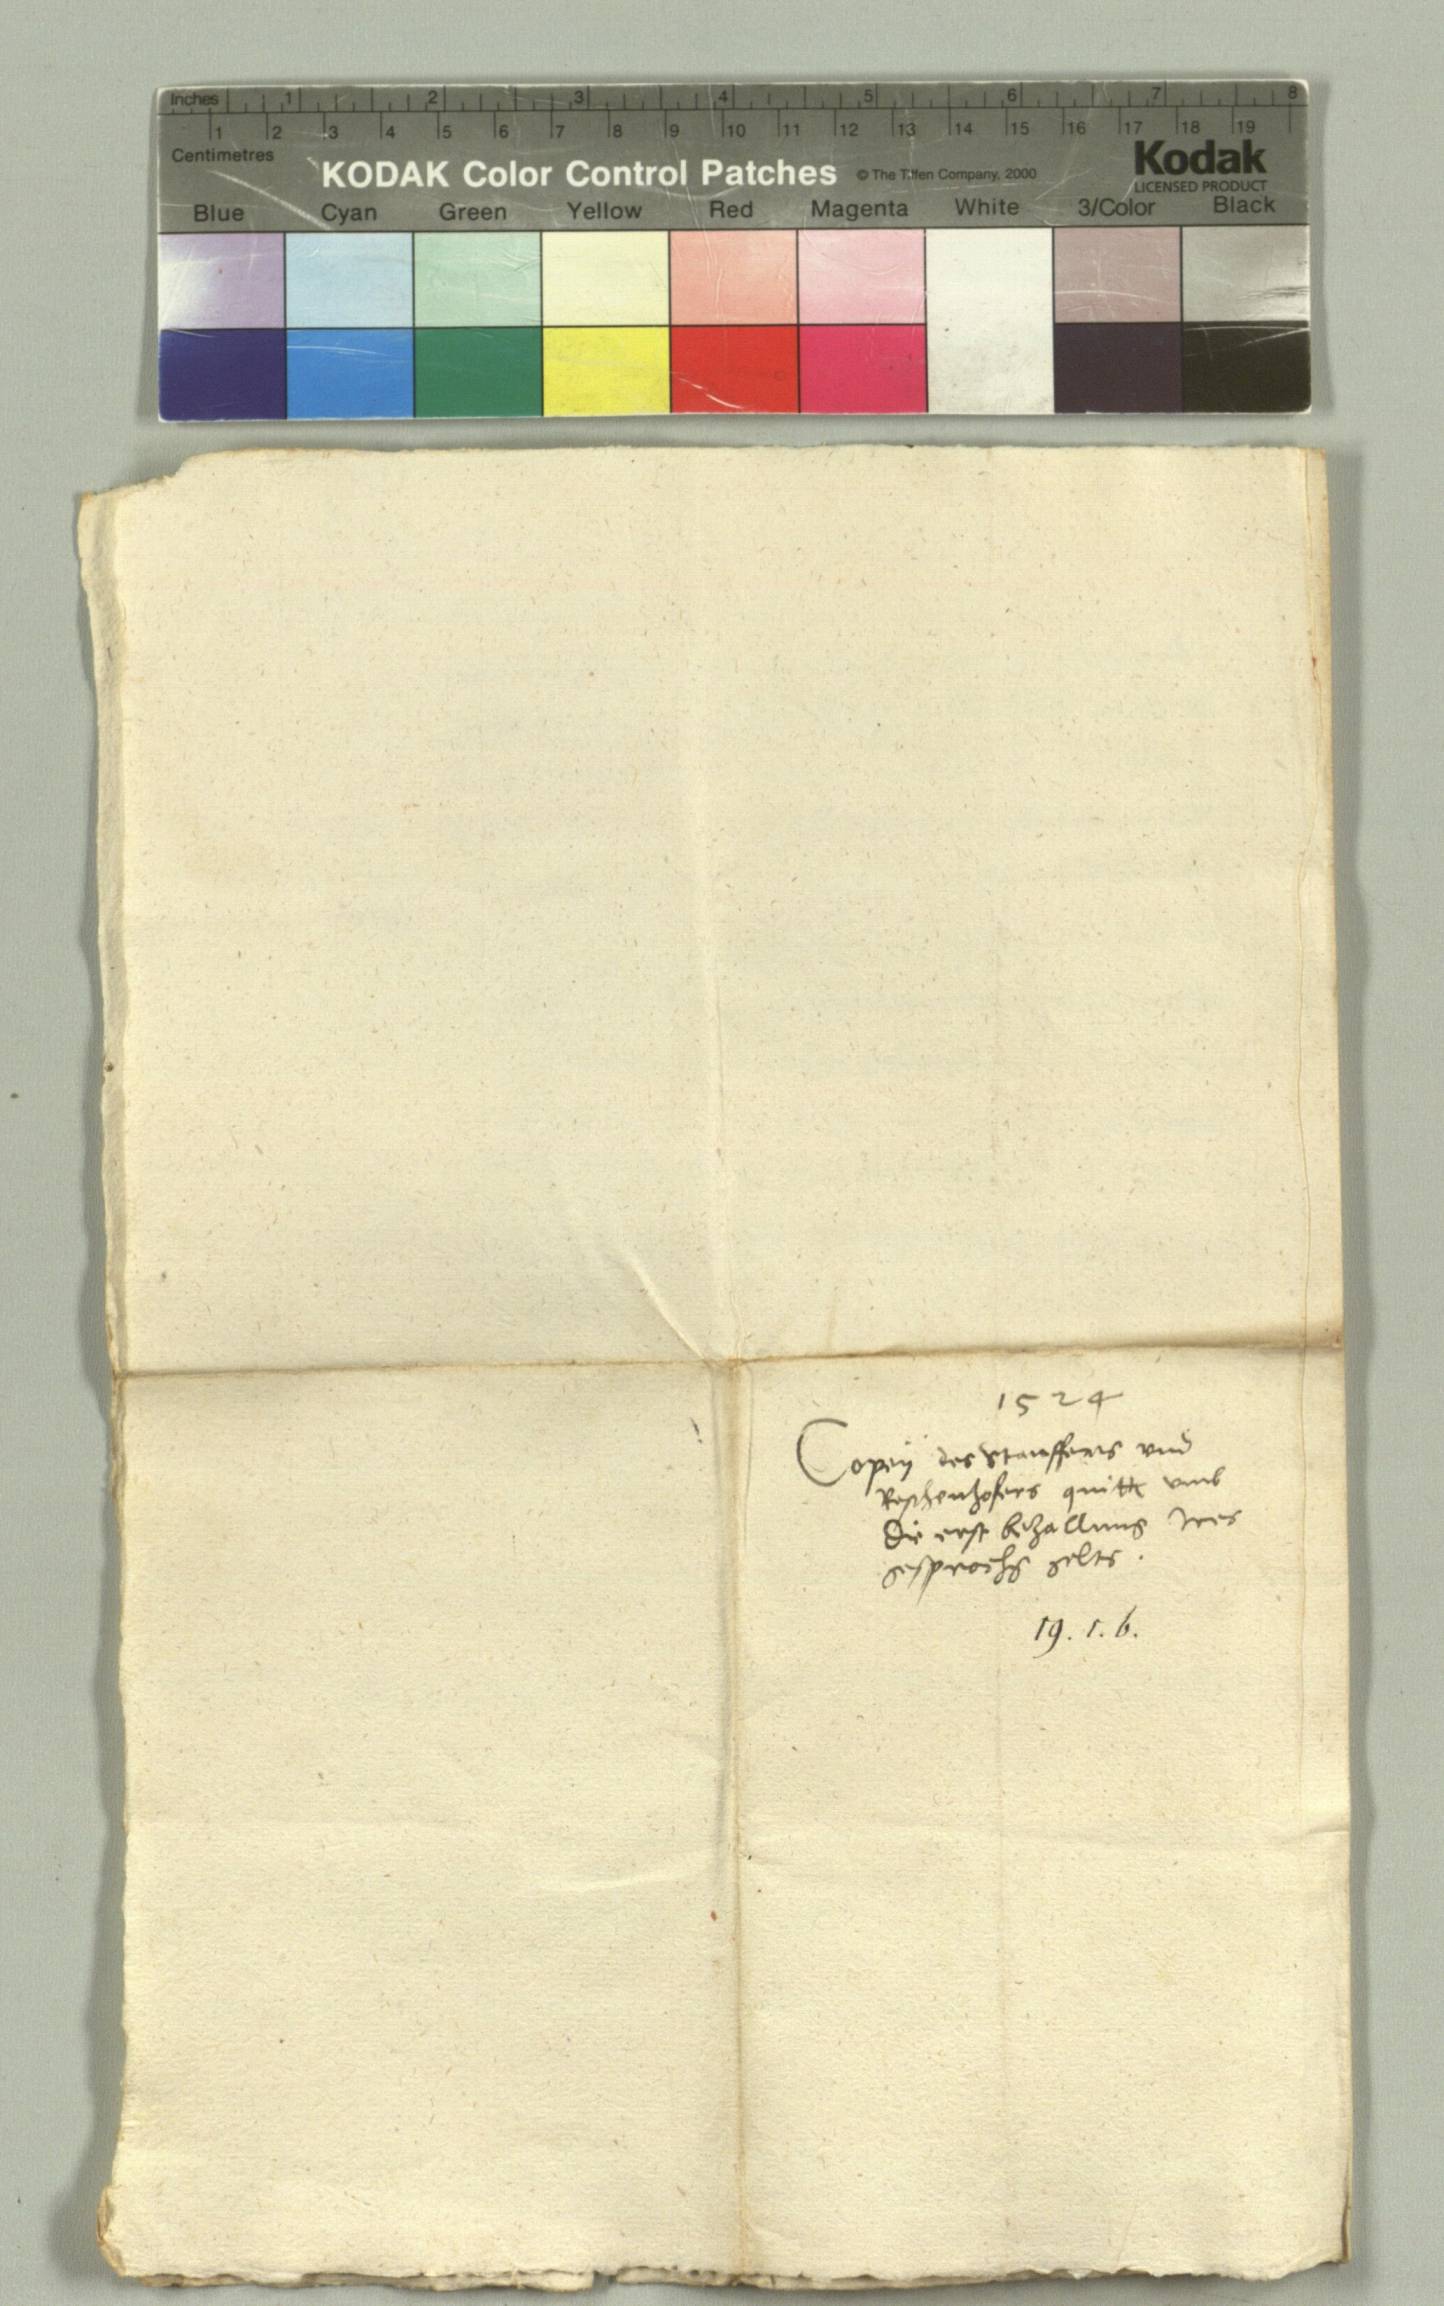 Inches 1 2 3 4 5 6 7 8
1 2 3 4 5 6 7 8 9 10 11 12 13 14 15 16 17 18 19
Centimetres
KODAK Color Control Patches © The Tiffen Company, 2000 Kodak
LICENSED PRODUCT
Blue Cyan Green Yellow Red Magenta White 3/Color Black
1524
Copeÿ des Stauffers vnd
quitt vmb
die erst bezallung Ires
gesprochs gelts.
19. 1. 6.